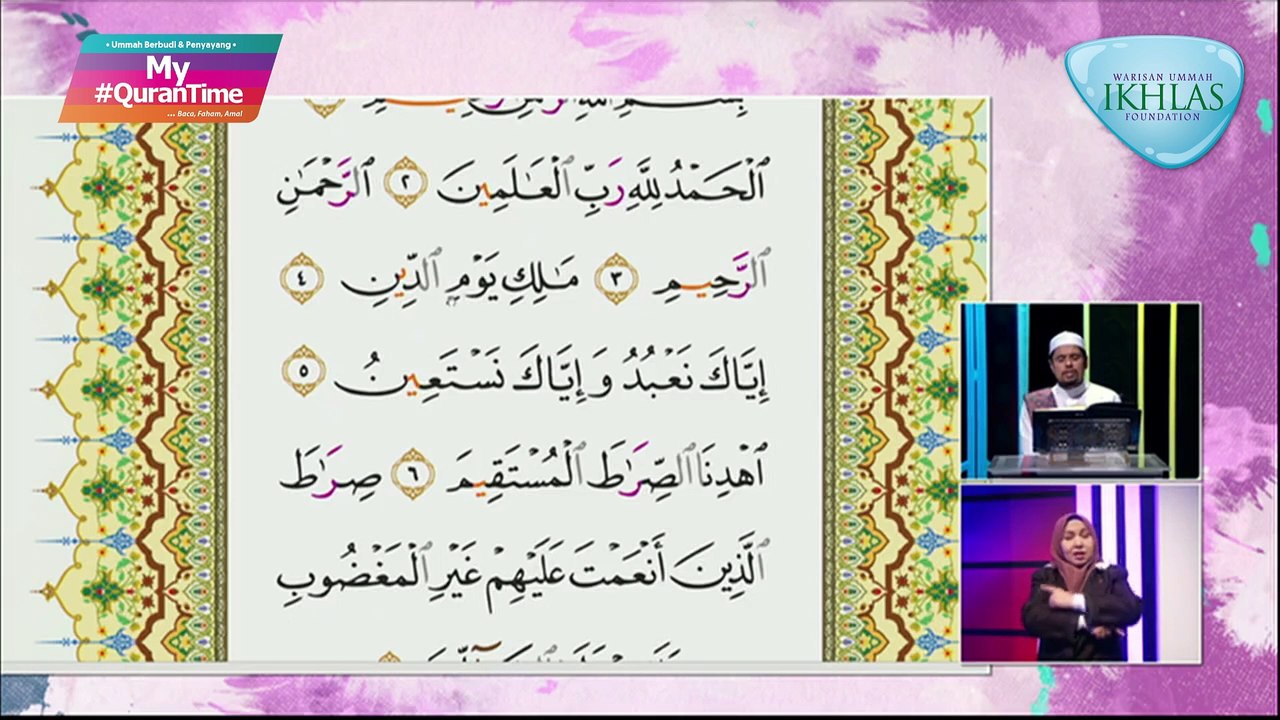 • Ummah Berbudi & Penyayang •
My
#QuranTime
... Baca, Faham, Amal
WARISAN UMMAH
IKHLAS
FOUNDATION
ٱلْحَمْدُ لِلَّهِ رَبِّ ٱلْعَـٰلَمِينَ ٢ ٱلرَّحْمَـٰنِ
ٱلرَّحِيمِ ٣ مَـٰلِكِ يَوْمِ ٱلدِّينِ ٤
إِيَّاكَ نَعْبُدُ وَإِيَّاكَ نَسْتَعِينُ ٥
ٱهْدِنَا ٱلصِّرَٰطَ ٱلْمُسْتَقِيمَ ٦ صِرَٰطَ
ٱلَّذِينَ أَنْعَمْتَ عَلَيْهِمْ غَيْرِ ٱلْمَغْضُوبِ